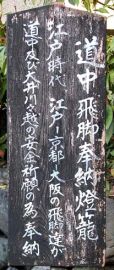 道中飛脚奉納燈籠
江戸時代 江戸ー京都 大阪の飛脚達が
道中及び大井川越の安全祈願の為 奉納